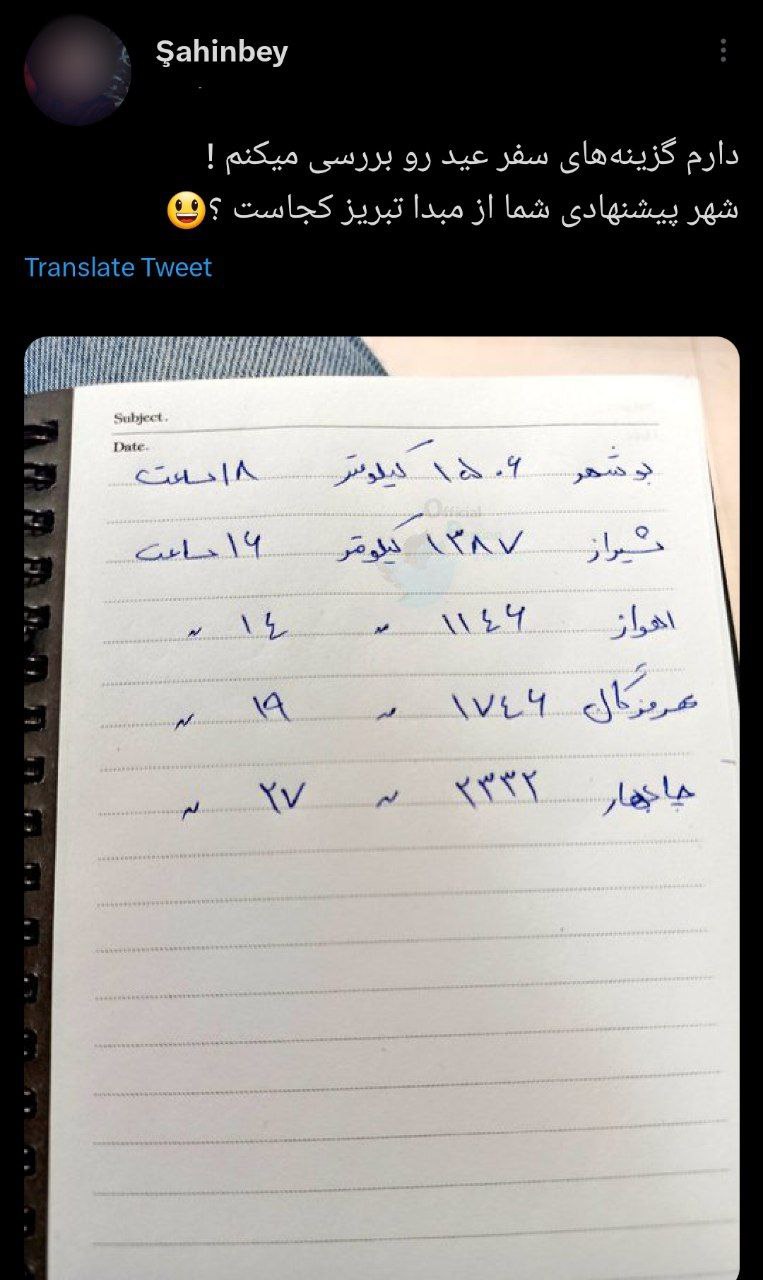 Şahinbey
دارم گزینه‌های سفر عید رو بررسی میکنم !
شهر پیشنهادی شما از مبدا تبریز کجاست ؟😃
Translate Tweet
Subject.
Date.
بوشهر ۱۵۰۶ کیلومتر ۱۸ ساعت
Official
شیراز ۱۳۸۷ کیلومتر ۱۶ ساعت
اهواز ۱۱٤۶ " ۱٤ "
هرمزگان ۱۷٤۶ " ۱۹ "
چابهار ۲۳۳۲ " ۲۷ "